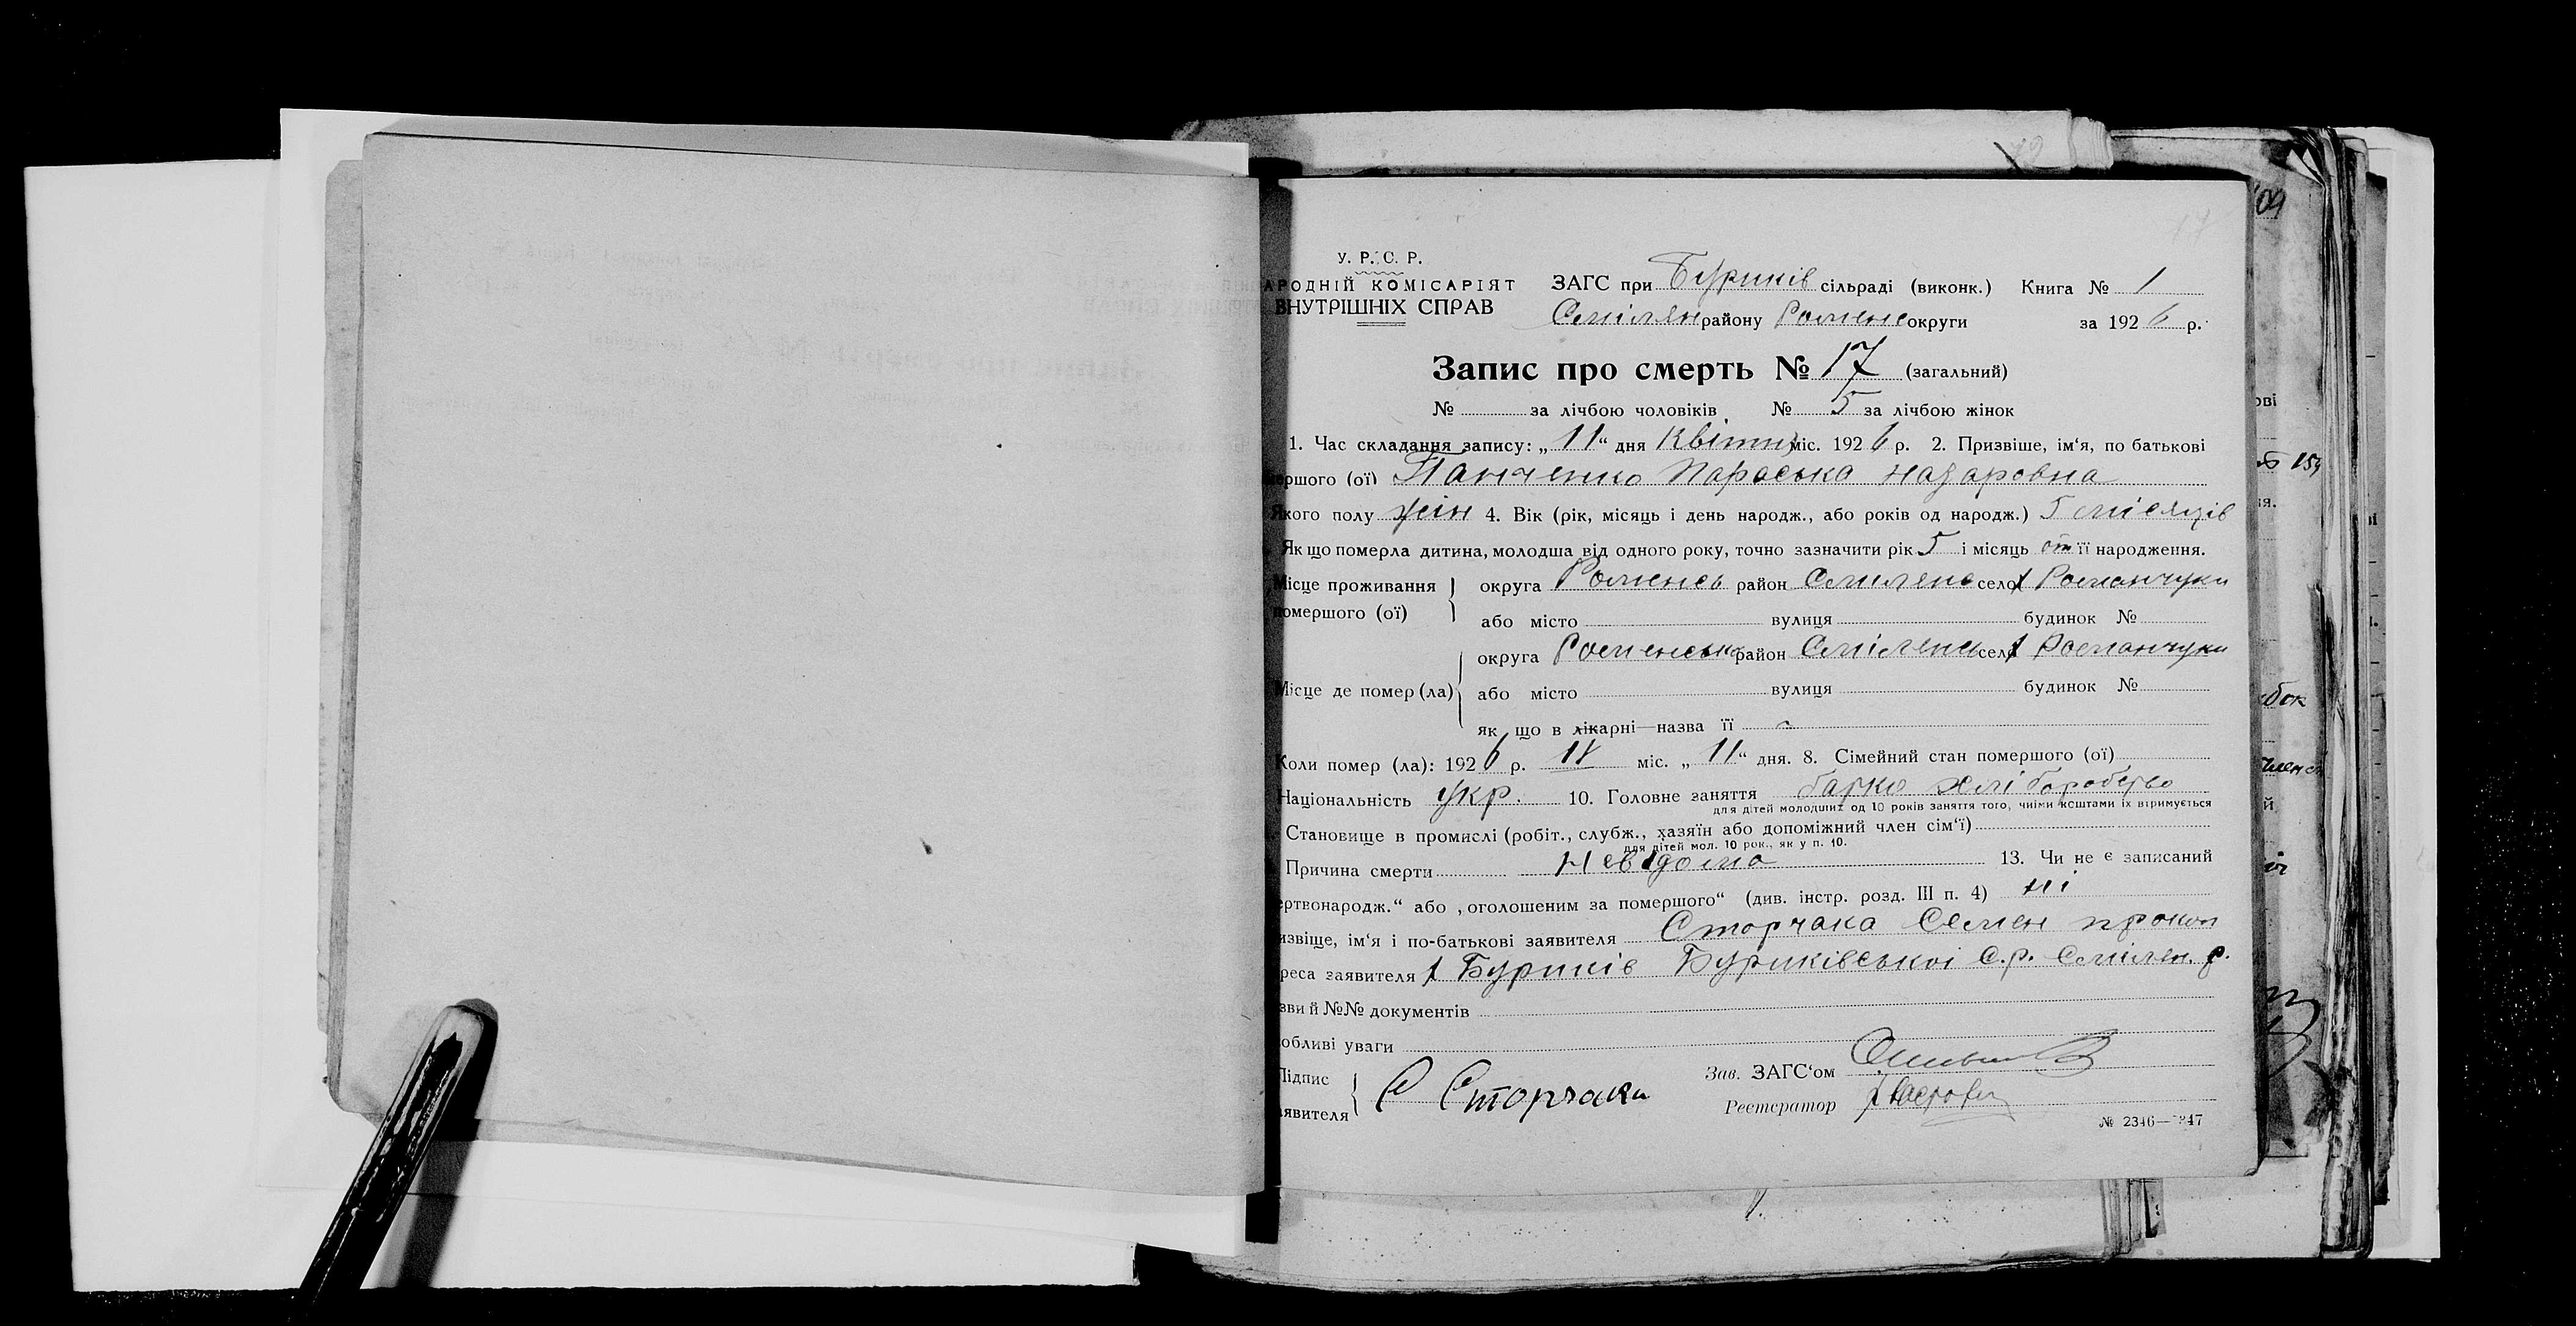 У. Р. С. Р.
АРОДНІЙ КОМІСАРІЯТ
ВНУТРІШНІХ СПРАВ
ЗАГС при Буриків сільраді (виконк.) Книга № 1
Смілян району Роменс округи за 1926 р.
Запис про смерть № 17 (загальний)
№ за лічбою чоловіків, № 5 за лічбою жінок
1. Час складання запису: „11“ дня Квітня міс. 1926 р. 2. Призвіше, ім‘я, по батькові
ершого (ої) Панченко Параська Назаровна
якого полу жін 4. Вік (рік, місяць і день народж., або років од народж.) 5 місяців
Як що померла дитина, молодша від одного року, точно зазначити рік 5 і місяць от її народження.
Місце проживання помершого (ої) округа Роменсь район Смілянс село х Романчуки
або місто вулиця будинок №
Місце де помер (ла) округа Роменська район Сміленсь село х Романчуки
або місто вулиця будинок №
як що в лікарні—назва її
Коли помер (ла): 1926 р. міс. „11“ дня. 8. Сімейний стан помершого (ої)
Національність укр. 10. Головне заняття батько хліборобство
для дітей молодших од 10 років заняття того, чиїми коштами їх втримується
Становище в промислі (робіт., служб., хазяїн або допоміжний член сім‘ї)
для дітей мол. 10 рок., як у п. 10.
Причина смерти невідома 13. Чи не є записаний
ертвонародж.“ або „оголошеним за помершого“ (див. інстр. розд. III п. 4) ні
ізвіще, ім‘я і по-батькові заявителя Сторчака Семен прокоп
реса заявителя х Буриків Буриківської С.р. Смілян. р.
зви й №№ документів
обливі уваги
Підпис
аявителя С Сторчака
Зав. ЗАГС‘ом
Реєстратор
№ 2346—